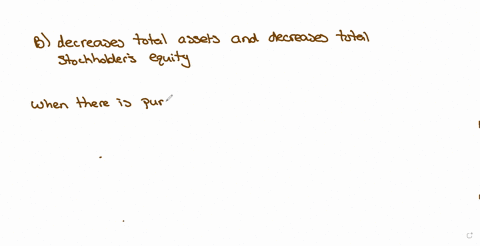 B) decreases total assets and decreases total
Stockholder's equity
when there is pur